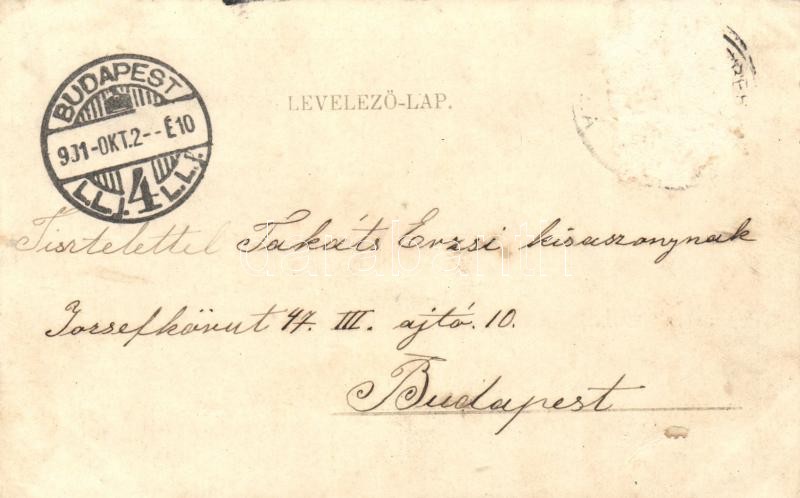 BUDAPEST
901-OKT.2--É10
I.L.j. 4 L.L.j.
LEVELEZŐ-LAP.
Tisztelettel Takáts Erzsi kisaszonynak
Jozsefkörut 47. III. ajtó. 10.
Budapest